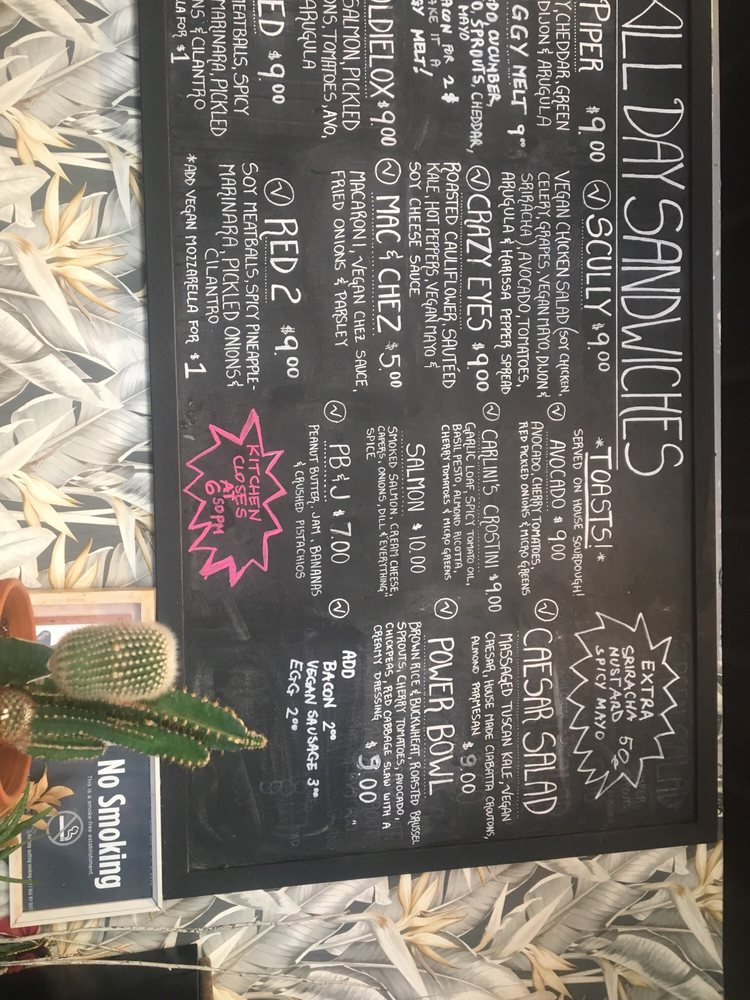 ALL DAY SANDWICHES
PIPER $9.00
Y, CHEDDAR, GREEN
DIJON & ARUGULA
GGY MELT 9.00
DO, CUCUMBER,
O, SPROUTS, CHEDDAR,
MAYO
ACON FOR 2$
AKE IT A
GY MELT!
OLDIELOX $9.00
SALMON, PICKLED
ONS, TOMATOES, AVO,
ARUGULA
ED $9.00
MEATBALLS, SPICY
MARINARA, PICKLED
NS & CILANTRO
LLA FOR $1
V SCULLY $9.00
VEGAN CHICKEN SALAD (SOY CHICKEN,
CELERY, GRAPES, VEGAN MAYO, DIJON &
SRIRACHA), AVOCADO, TOMATOES,
ARUGULA & HARISSA PEPPER SPREAD
V CRAZY EYES $9.00
ROASTED CAULIFLOWER, SAUTÉED
KALE, HOT PEPPERS, VEGAN MAYO &
SOY CHEESE SAUCE
V MAC & CHEZ $5.00
MACARONI, VEGAN CHEZ SAUCE,
FRIED ONIONS & PARSLEY
V RED 2 $9.00
SOY MEATBALLS, SPICY PINEAPPLE-
MARINARA, PICKLED ONIONS &
CILANTRO
*ADD VEGAN MOZZARELLA FOR $1
*TOASTS!*
SERVED ON HOUSE SOURDOUGH!
V AVOCADO $9.00
AVOCADO, CHERRY TOMATOES,
RED PICKED ONIONS & MICRO GREENS
V CARLINI'S CROSTINI $9.00
GARLIC LOAF, SPICY TOMATO OIL,
BASIL PESTO, ALMOND RICOTTA,
CHERRY TOMATOES & MICRO GREENS
SALMON $10.00
SMOKED SALMON, CREAM CHEESE,
CAPERS, ONIONS, DILL & "EVERYTHING"
SPICE
V PB & J $7.00
PEANUT BUTTER, JAM, BANANAS
& CRUSHED PISTACHIOS
KITCHEN
CLOSES
AT
6:30PM
EXTRA
SRIRACHA
NUSTAIRD 50¢
SPICY MAYO
V CAESAR SALAD
MASSAGED TUSCAN KALE, VEGAN
CAESAR, HOUSE MADE CIABATTA CROUTONS,
ALMOND PARMESAN $9.00
V POWER BOWL
BROWN RICE & BUCKWHEAT, ROASTED BRUSSEL
SPROUTS, CHERRY TOMATOES, AVOCADO,
CHICKPEAS, RED CABBAGE SLAW WITH A
CREAMY DRESSING $9.00
V
ADD
BACON 2.00
VEGAN SAUSAGE 3.00
EGG 2.00
No Smoking
This is a smoke-free establishment.